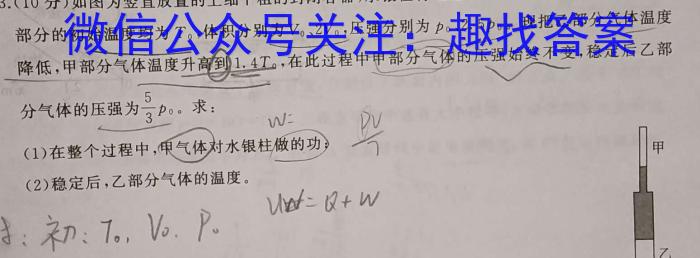 3.(10分)如图为竖直放置的上细下粗的
部分的初始温度均为T₀,体积分别为V₀、2V₀,压强分别为p₀
部分气体温度
微信公众号关注：趣找答案
降低,甲部分气体温度升高到1.4T₀,在此过程中甲部分气体的压强始终不变,稳定后乙部
分气体的压强为5/3p₀。求：
W=
(1)在整个过程中,甲气体对水银柱做的功；
PV/T
(2)稳定后,乙部分气体的温度。
=Q+W
初: T₀, V₀. P₀
甲
乙